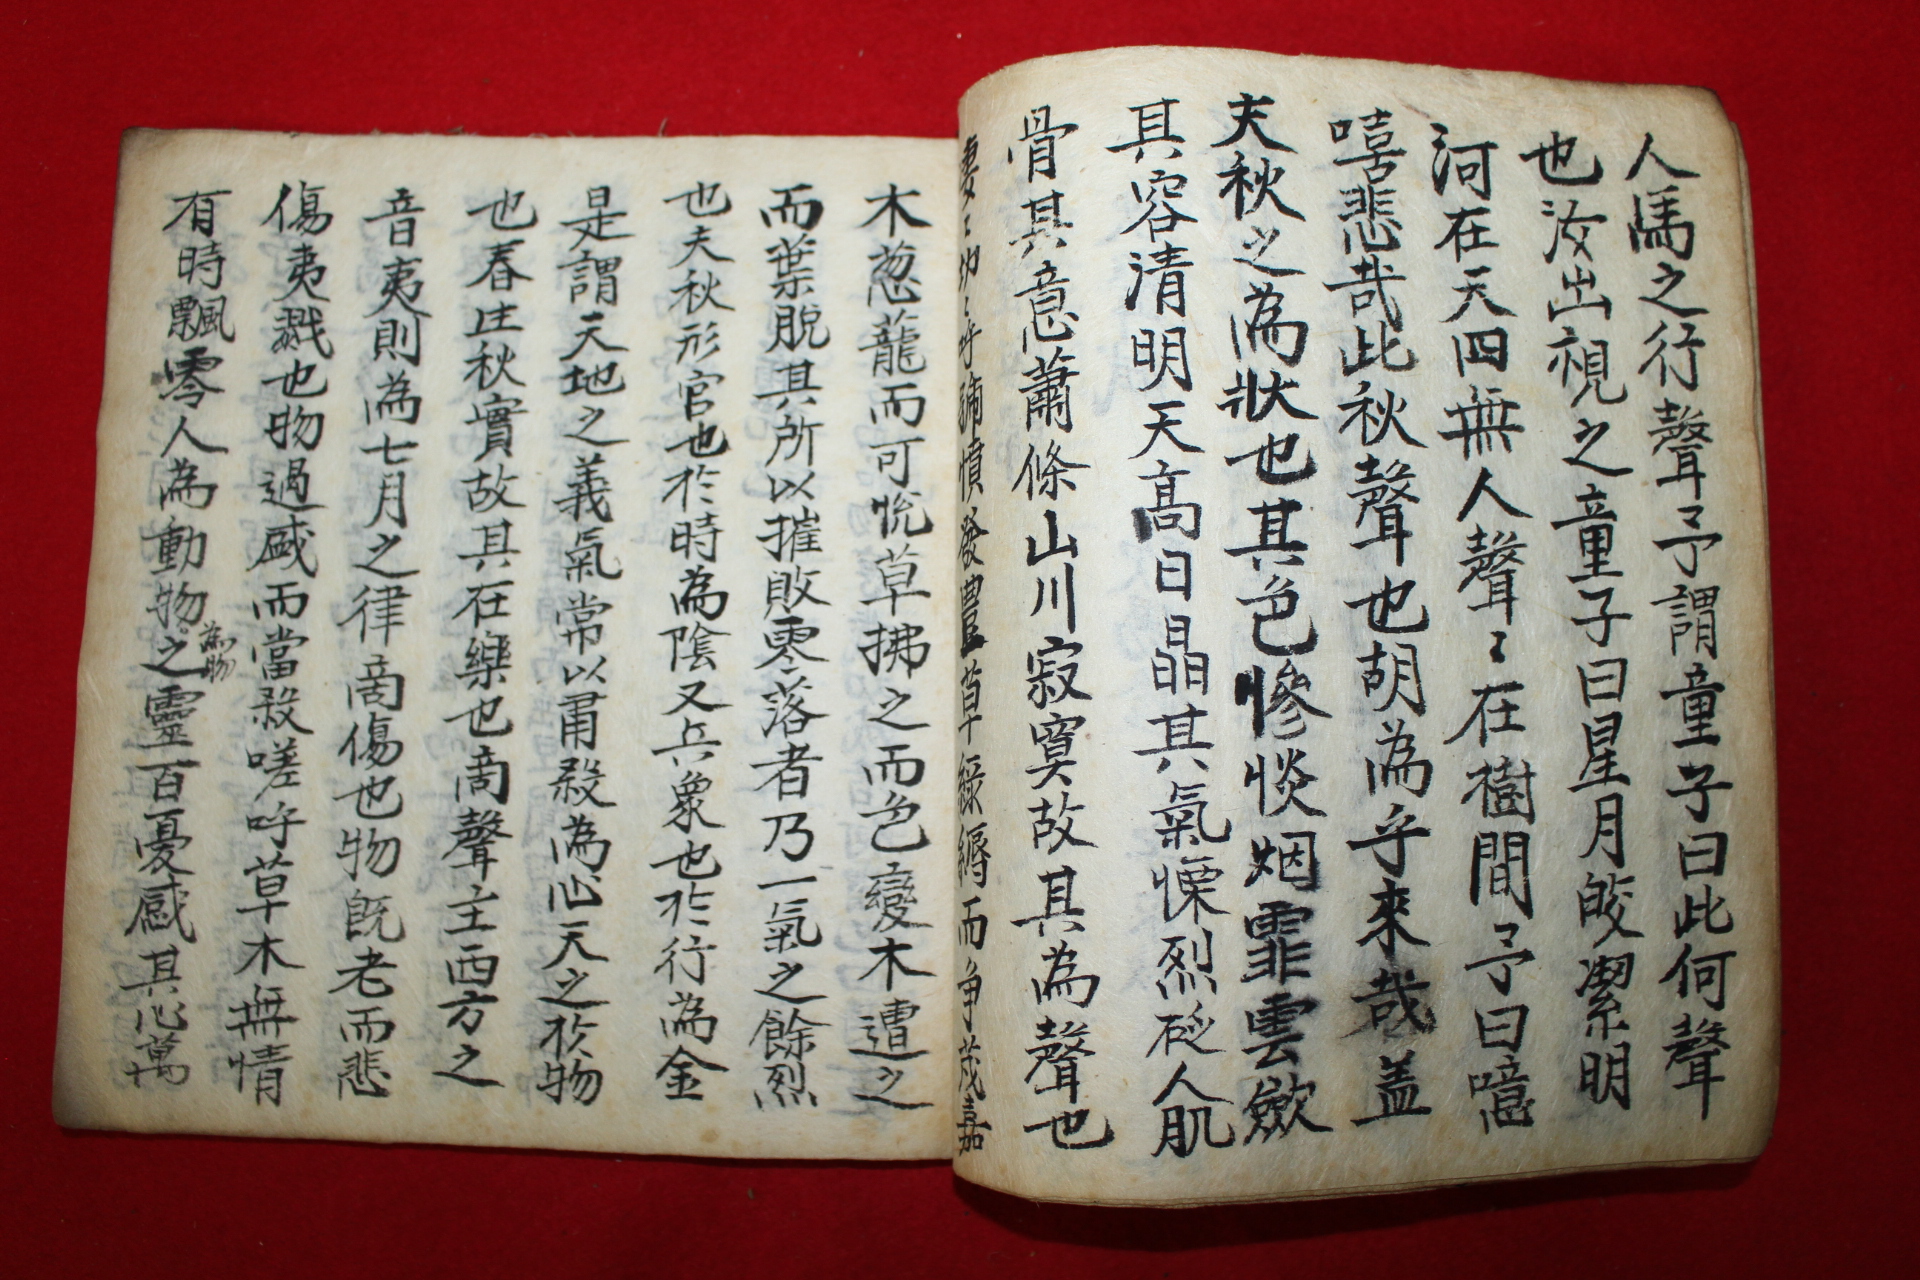 人馬之行聲予謂童子曰此何聲
也汝出視之童子曰星月皎潔明
河在天四無人聲〻在樹間予曰噫
嘻悲哉此秋聲也胡為乎來哉盖
夫秋之為狀也其色慘惔烟霏雲歛
其容清明天高日晶其氣慄烈砭人肌
骨其意蕭條山川寂寞故其為聲也
凄〻切〻呼號憤發豊草綠縟而争茂嘉
木葱蘢而可悅草拂之而色變木遭之
而葉脫其所以摧敗零落者乃一氣之餘烈
也夫秋形官也於時為陰又兵象也於行為金
是謂天地之義氣常以肅殺為心天之於物
也春生秋實故其在樂也商聲主西方之
音夷則為七月之律商傷也物既老而悲
傷夷戮也物過盛而當殺嗟呼草木無情
有時飄零人為動物之靈百憂感其心萬
為物